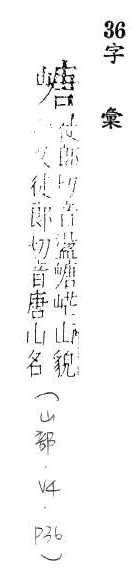 36字彙
嵣
徒郎切音溏嵣㟐山貌
又徒郎切音唐山名
(山部．V4．P36)